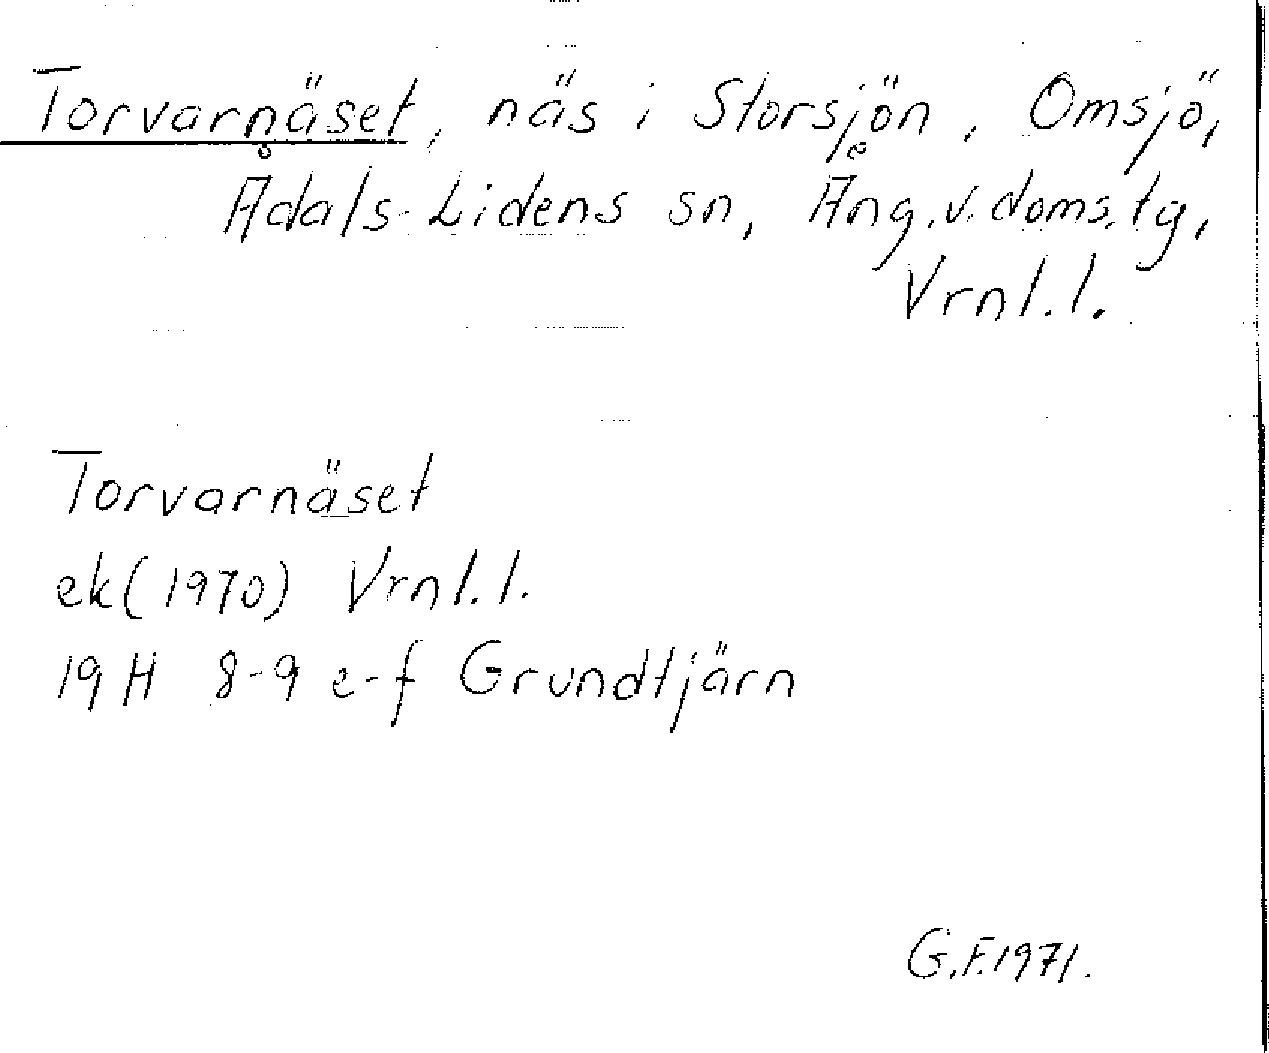 Torvarnäset, näs i Storsjön, Omsjö,
Ådals-Lidens sn, Ång. v. doms. tg,
Vrnl. l.
Torvarnäset
ek (1970) Vrnl. l.
19 H 8-9 e-f Grundtjärn
G.F. 1971.